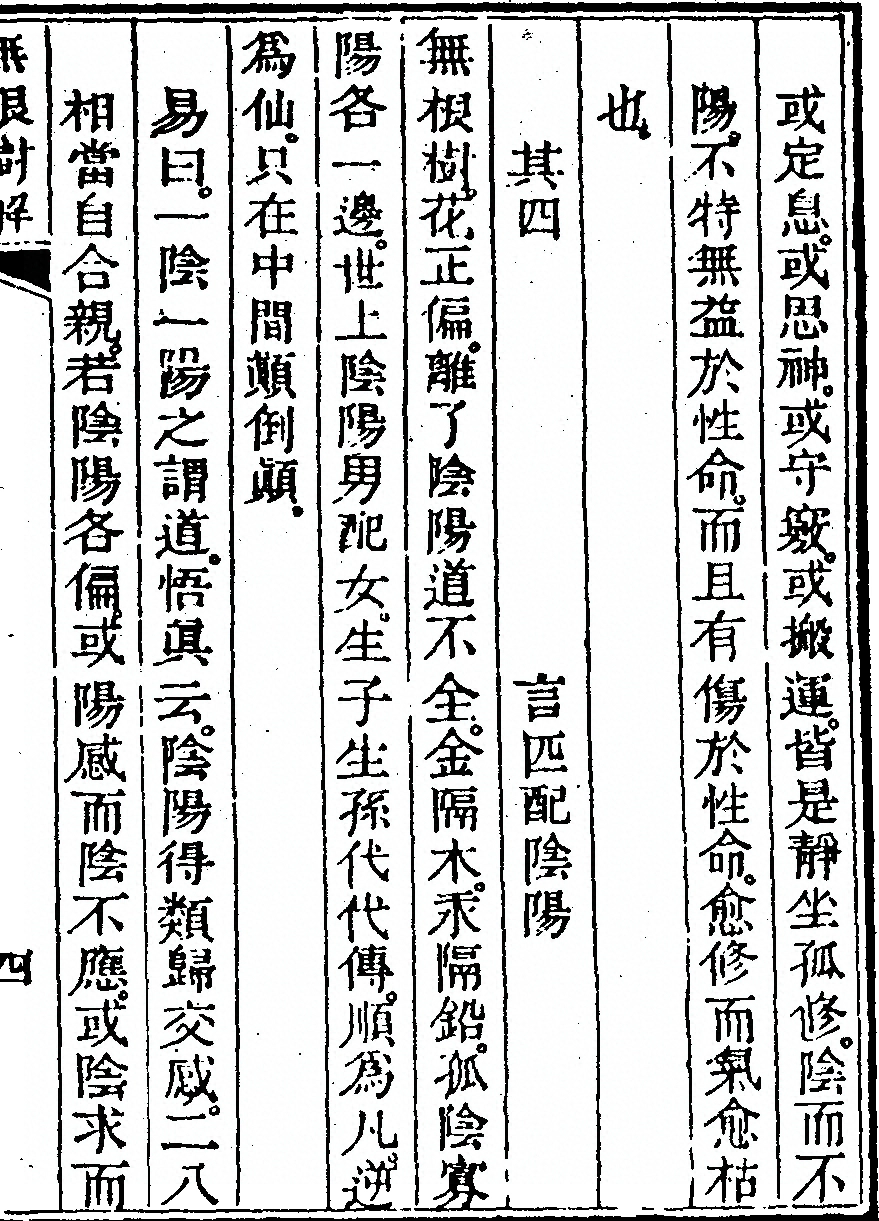 或定息。或思神。或守竅。或搬運。皆是靜坐孤修。陰而不
陽。不特無益於性命。而且有傷於性命。愈修而氣愈枯
也。
其四　言匹配陰陽
無根樹。花正偏。離了陰陽道不全。金隔木。汞隔鉛。孤陰寡
陽各一邊。世上陰陽男配女。生子生孫代代傳。順爲凡。逆
爲仙。只在中間顛倒顛。
易曰。一陰一陽之謂道。悟眞云。陰陽得類歸交感。二八
相當自合親。若陰陽各偏。或陽感而陰不應。或陰求而
無根樹解　四